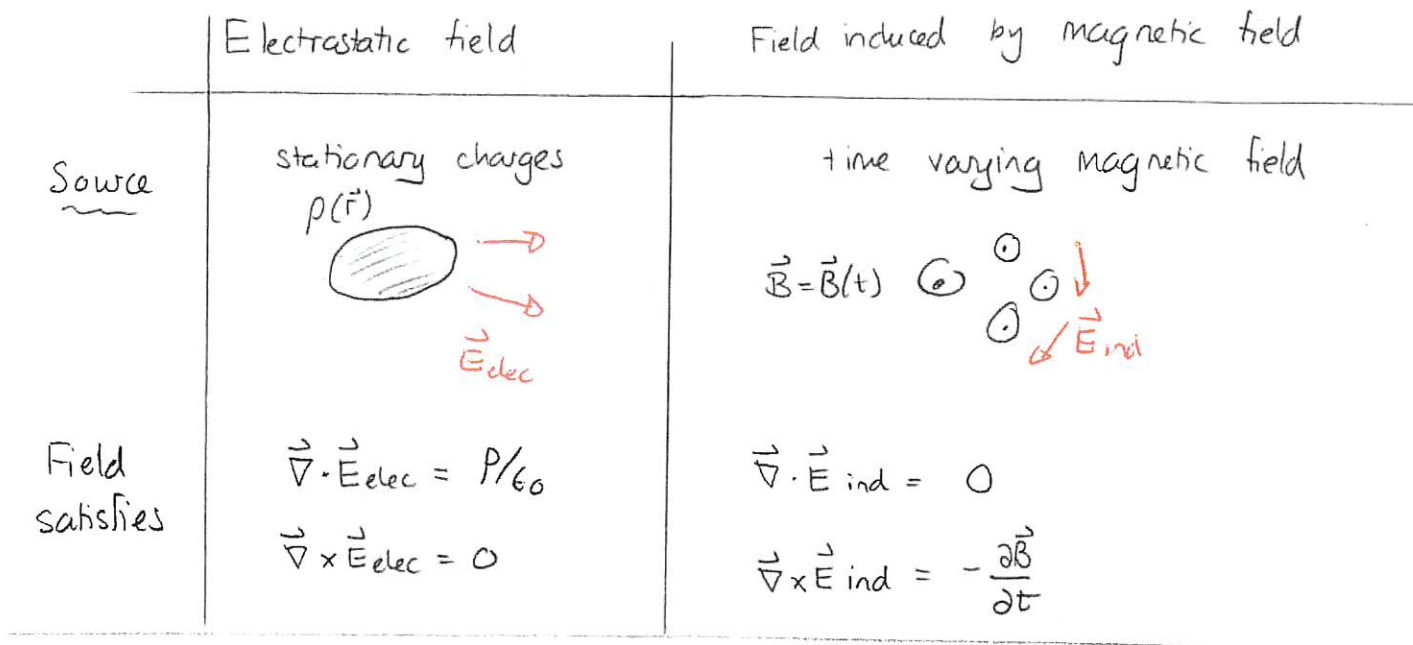 Electrostatic field
Field induced by magnetic field
Source
stationary charges
ρ(r⃗)
E⃗elec
time varying magnetic field
B⃗=B⃗(t)
E⃗ind
Field
satisfies
∇⃗·E⃗elec = ρ/ε₀
∇⃗×E⃗elec = 0
∇⃗·E⃗ind = 0
∇⃗×E⃗ind = -∂B⃗/∂t